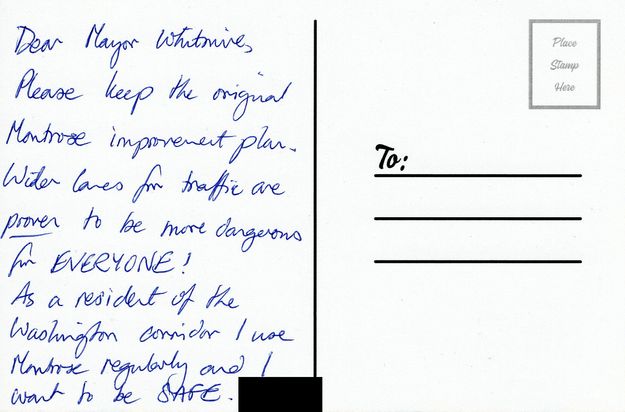 Dear Mayor Whitmire,
Please keep the original
Montrose improvement plan.
Wider lanes for traffic are
proven to be more dangerous
for EVERYONE!
As a resident of the
Washington corridor I use
Montrose regularly and I
want to be SAFE.
Place
Stamp
Here
To: